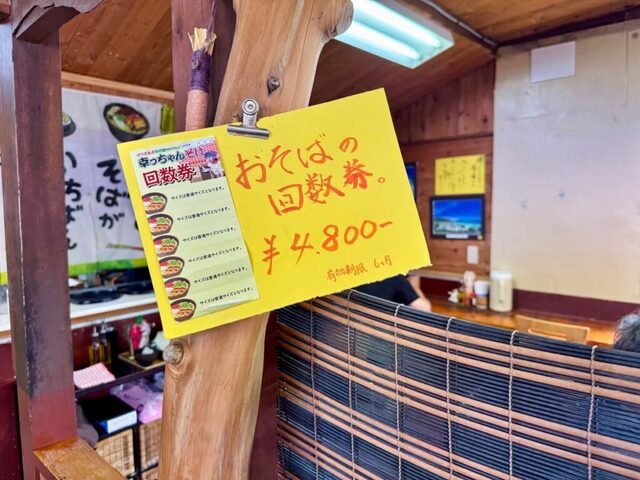 幸っちゃんそば
回数券
サイズは普通サイズとなります。
サイズは普通サイズとなります。
サイズは普通サイズとなります。
サイズは普通サイズとなります。
サイズは普通サイズとなります。
おそばの
回数券。
¥4.800-
有効期限 6ヶ月
そばが
いちばん